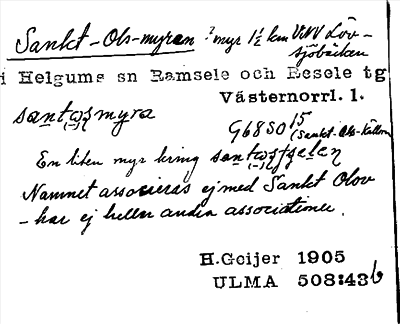 Sankt-Ols-myran ? myr 1½ km VNV Löv-
sjöbäcken
i Helgums sn Ramsele och Resele tg
Västernorrl. l.
santosmyra
G68SO15
(Sankt-Ols-källan
En liten myr kring
Namnet associeras ej med Sankt Olov
- har ej heller andra associationer.
H.Geijer 1905
ULMA 508:43b